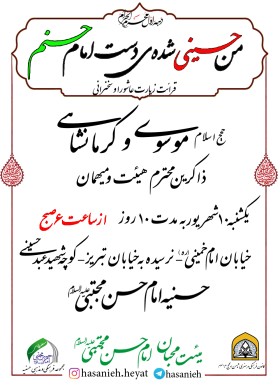 من حسینی شده‌ی دست امام حسنم
قرائت زیارت عاشورا و سخنرانی
حجج اسلام موسوی و کرمانشاهی
ذاکرین محترم هیئت و میهمان
یکشنبه ۱۰ شهریور به مدت ۱۰ روز از ساعت ۶ صبح
خیابان امام خمینی (ره) نرسیده به خیابان تبریز - کوچه شهید عبدحسینی
حسنیه امام حسن مجتبی علیه السلام
هیئت محبان امام حسن مجتبی علیه السلام
hasanieh.heyat @hasanieh